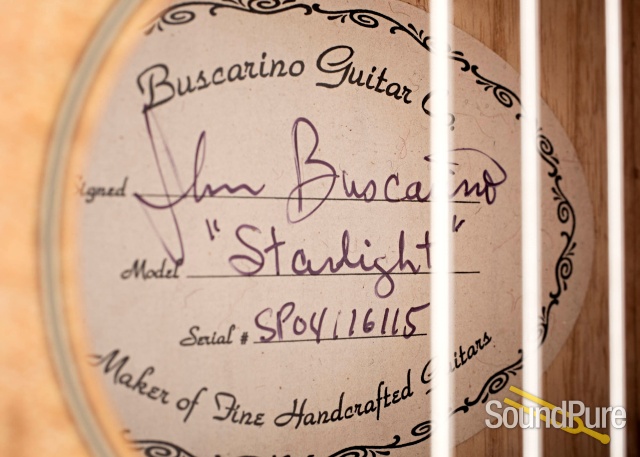 Buscarino Guitar Co.
Signed John Buscarino
Model "Starlight"
Serial # SP04116115
Maker of Fine Handcrafted Guitars
SoundPure